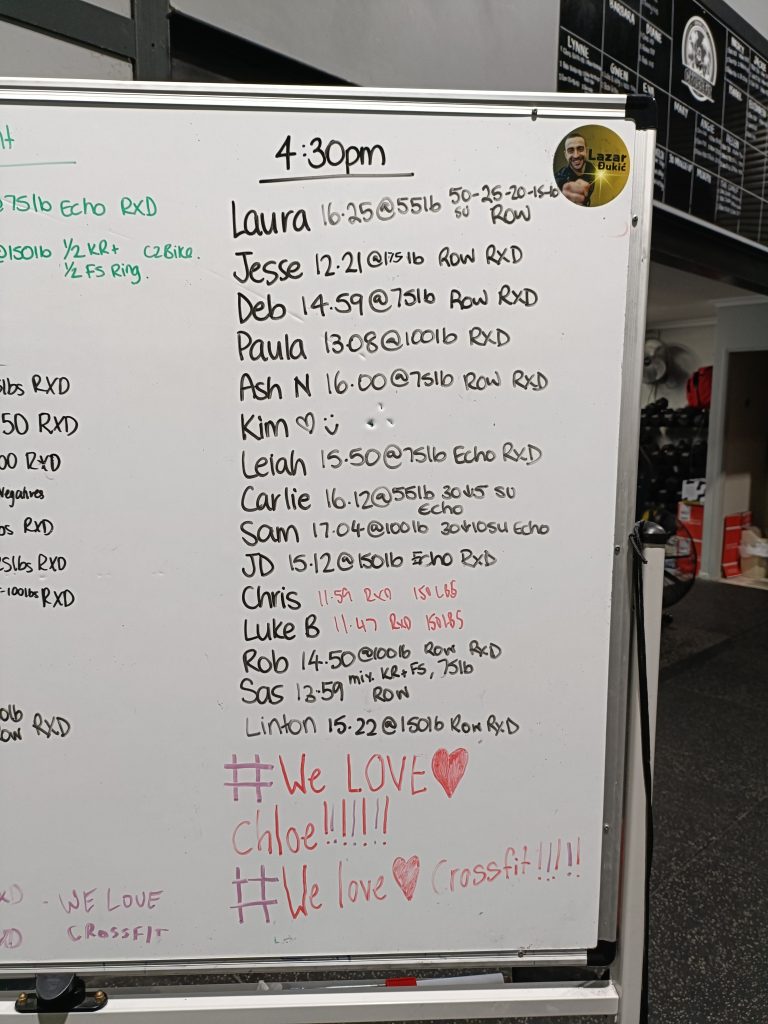 4:30pm
Lazar
Đukić
Laura 16.25@55lb 50-25-20-15-10
SU ROW
Jesse 12.21@175lb Row RXD
Deb 14.59@75lb Row RXD
Paula 13.08@100lb RXD
Ash N 16.00@75lb Row RXD
Kim ♡
Leiah 15.50@75lb Echo RXD
Carlie 16.12@55lb 30↓5 SU
Echo
Sam 17.04@100lb 30↓10SU Echo
JD 15.12@150lb Echo RXD
Chris 11.59 RXD 150LBS
Luke B 11.47 RXD 150LBS
Rob 14.50@100lb Row RXD
Sas 13.59 mix. KR+FS, 75lb
ROW
Linton 15.22@150lb Row RXD
#We LOVE♥
Chloe!!!!!!!
#We love♥ Crossfit!!!!!
@75lb Echo RXD
@150lb ½ KR+ C2Bike.
½ FS Ring.
lbs RXD
50 RXD
00 RXD
Negatives
bs RXD
25lbs RXD
100lbs RXD
0lb
ROW RXD
XD - WE LOVE
XD CROSSFIT
BARBARA
DIANE
LYNNE
GWEN
EVA
MARY
ANGIE